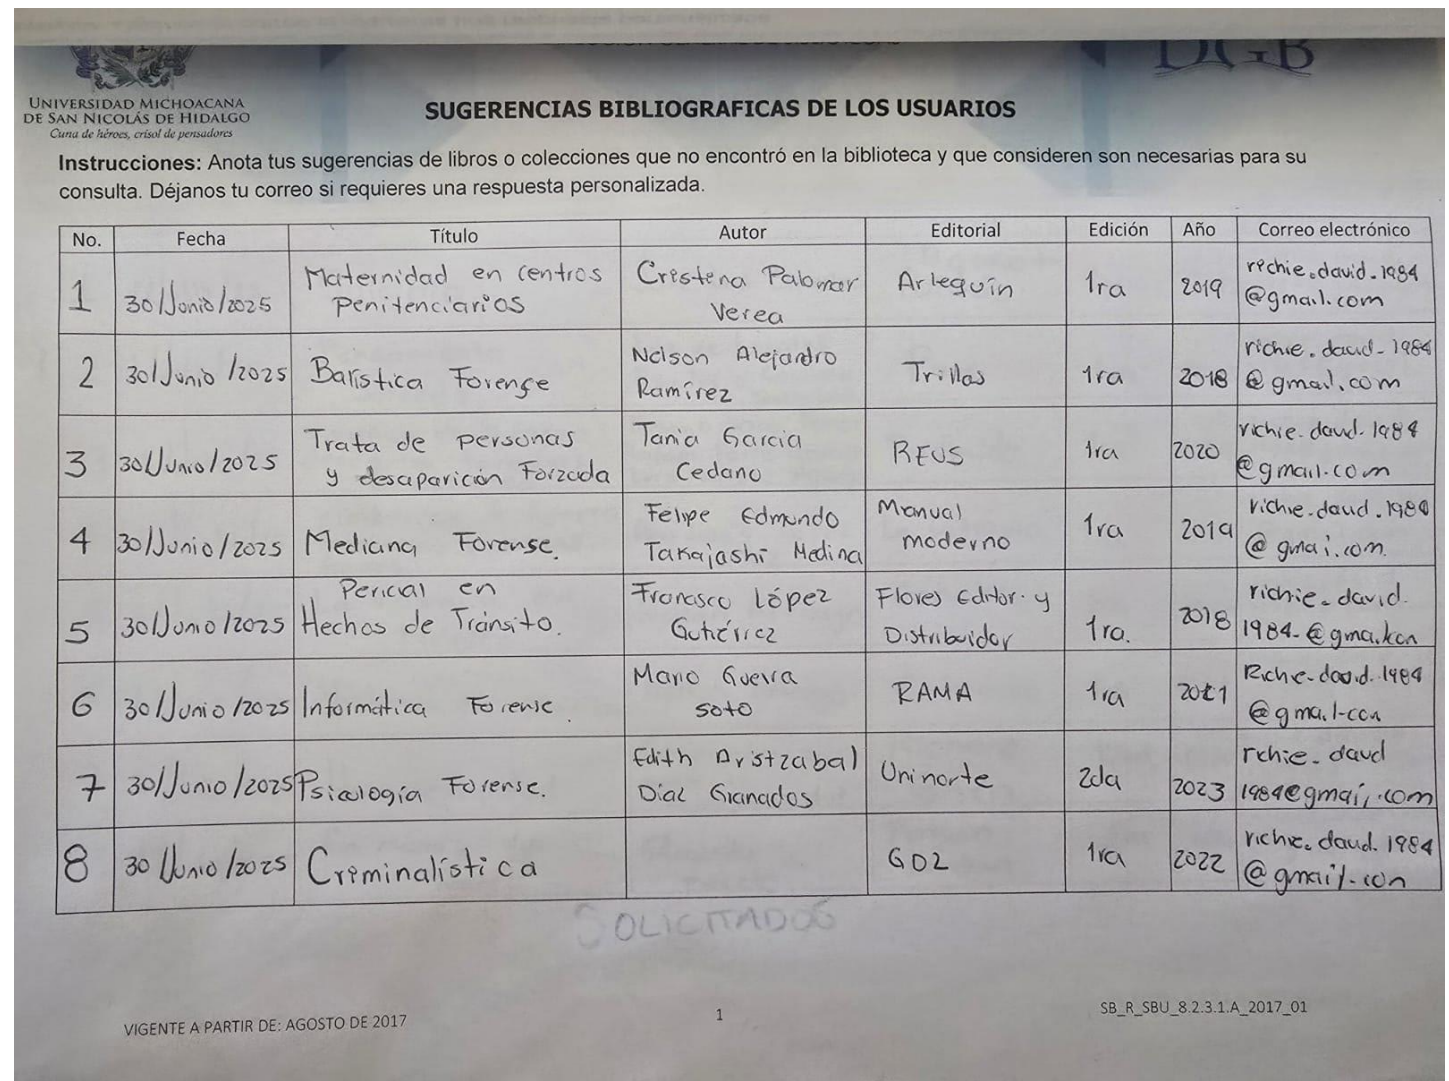 DGB
UNIVERSIDAD MICHOACANA
DE SAN NICOLÁS DE HIDALGO
Cuna de héroes, crisol de pensadores
SUGERENCIAS BIBLIOGRAFICAS DE LOS USUARIOS
Instrucciones: Anota tus sugerencias de libros o colecciones que no encontró en la biblioteca y que consideren son necesarias para su
consulta. Déjanos tu correo si requieres una respuesta personalizada.
No. Fecha Título Autor Editorial Edición Año Correo electrónico
1 30/Junio/2025 Maternidad en centros Penitenciarios Cristena Palomar Verea Arlequín 1ra 2019 richie.david.1984 @gmail.com
2 30/Junio/2025 Balística Forense Nelson Alejandro Ramírez Trillas 1ra 2018 richie.david-1984 @gmail.com
3 30/Junio/2025 Trata de personas y desaparición Forzada Tania Garcia Cedano REUS 1ra 2020 richie.david.1984 @gmail.com
4 30/Junio/2025 Medicina Forense. Felipe Edmundo Takajashi Medina Manual moderno 1ra 2019 richie.david.1984 @gmai.com.
5 30/Junio/2025 Pericial en Hechos de Tránsito. Francisco López Gutiérrez Flores Editor. y Distribuidor 1ra. 2018 richie-david. 1984-@gmail.com
6 30/Junio/2025 Informática Forense. Mario Guerra Soto RAMA 1ra 2021 Richie-david.1984 @gmail-com
7 30/Junio/2025 Psicología Forense. Edith Aristzabal Díaz Granados Uninorte 2da 2023 richie-david 1984@gmail.com
8 30/Junio/2025 Criminalística 1ra 2022 richie.david.1984 @gmail.com
SOLICITADOS
VIGENTE A PARTIR DE: AGOSTO DE 2017
1
SB_R_SBU_8.2.3.1.A_2017_01